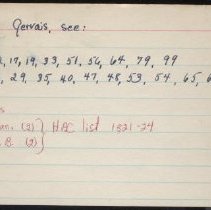 Gervais, see:
17, 19, 33, 51, 56, 64, 79, 99
29, 35, 40, 47, 48, 53, 54, 65,
an. (2) } HBC list 1821-24
B. (2)